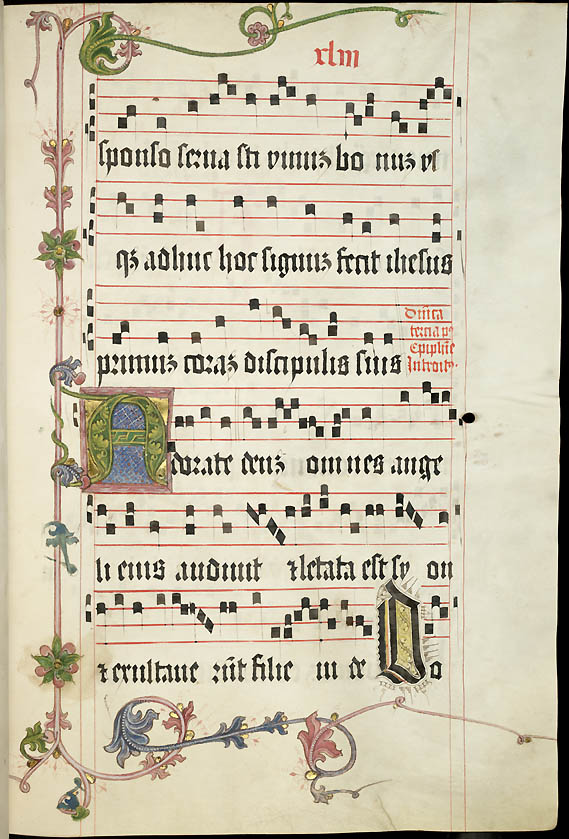 xliii
sponso serua sti vinuz bo nuz vs
qz adhuc hoc signuz fecit ihesus
primuz coraz discipulis suis
Dnica
tercia p9
Epiphie
Introit9.
Adorate deuz omnes ange
li eius audiuit & letata est sy on
& exultaue rūt filie iu de I o